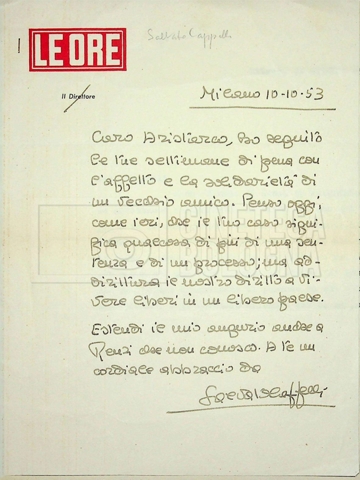 Salvato Cappelli
LE ORE
Il Direttore
Milano 10-10-53
Caro Aristarco, ho seguito
le tue settimane di pena con
l'affetto e la solidarietà di
un vecchio amico. Penso oggi,
come ieri, che il tuo caso signi-
fica qualcosa di più di una sen-
tenza e di un processo; ma ad-
dirittura il nostro diritto a vi-
vere liberi in un libero paese.
Estendi il mio augurio anche a
Renzi che non conosco. A te un
cordiale abbraccio da
Salvato Cappelli